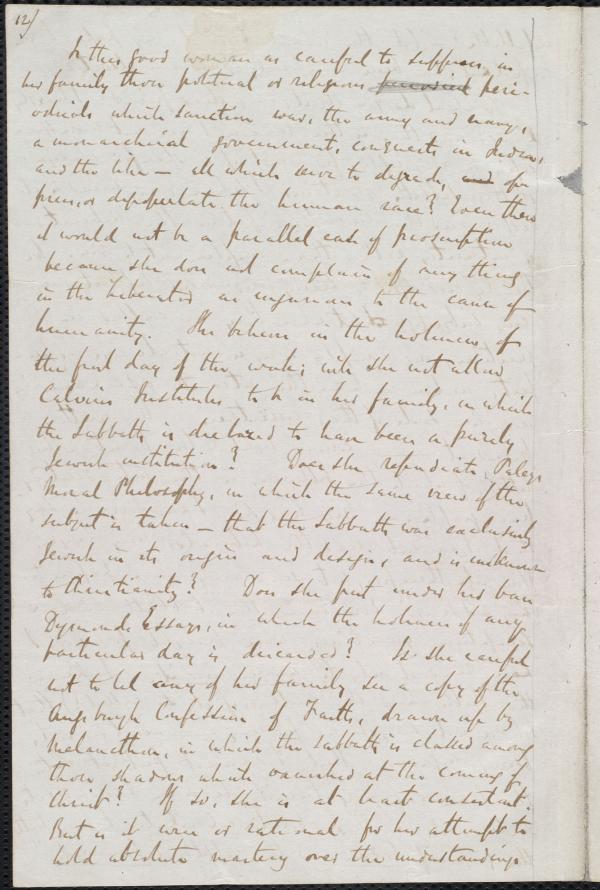 12/
Is this good woman as careful to suppress, in
her family those political or religious peri-
odicals which sanction war, the army and navy,
a monarchical government, conquests in India,
and the like — all which serve to degrade, op-
press, or depopulate the human race? Even then
it would not be a parallel case of proscription
because she does not complain of any thing
in the Liberator as injurious to the cause of
humanity. She believes in the holiness of
the first day of the week; will she not allow
Calvin's Institutes to be in her family, in which
the Sabbath is declared to have been a purely
Jewish institution? Does she repudiate Paley's
Moral Philosophy, in which the same view of the
subject is taken — that the Sabbath was exclusively
Jewish in its origin and design, and is unknown
to Christianity? Does she put under her ban
Dymond's Essays, in which the holiness of any
particular day is discarded? Is she careful
not to let any of her family see a copy of the
Augsburgh Confession of Faith, drawn up by
Melancthon, in which the Sabbath is classed among
those shadows which vanished at the coming of
Christ? If so, she is at least consistent.
But is it wise or rational for her attempt to
hold absolute mastery over the understandings